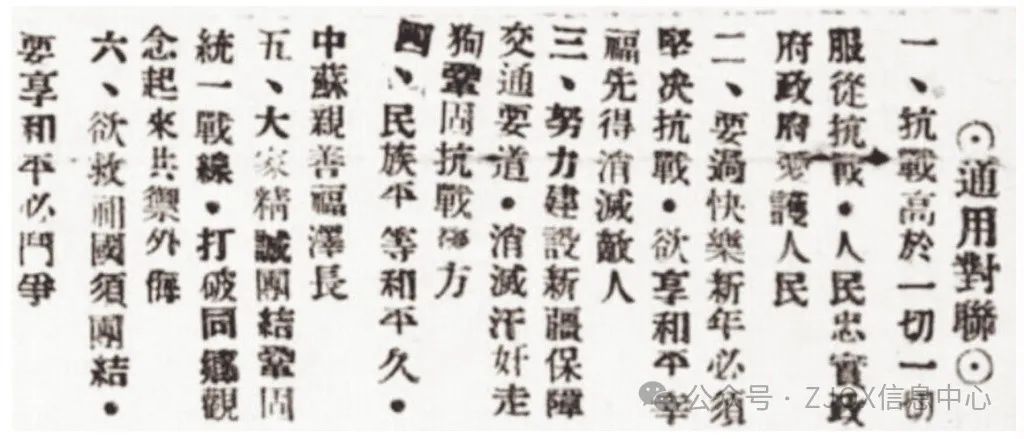 ⊙通用對聯⊙
一、抗戰高於一切一切
服從抗戰•人民忠實政
府政府愛護人民
二、要過快樂新年必須
堅决抗戰•欲享和平幸
福先得消滅敵人
三、努力建設新疆保障
交通要道•消滅汗奸走
狗鞏固抗戰後方
四、民族平等和平久•
中蘇親善福澤長
五、大家精誠團結鞏固
統一戰線•打破同鄉觀
念起來共禦外侮
六、欲救祖國須團結•
要享和平必鬥爭
公众号 · ZJQX信息中心